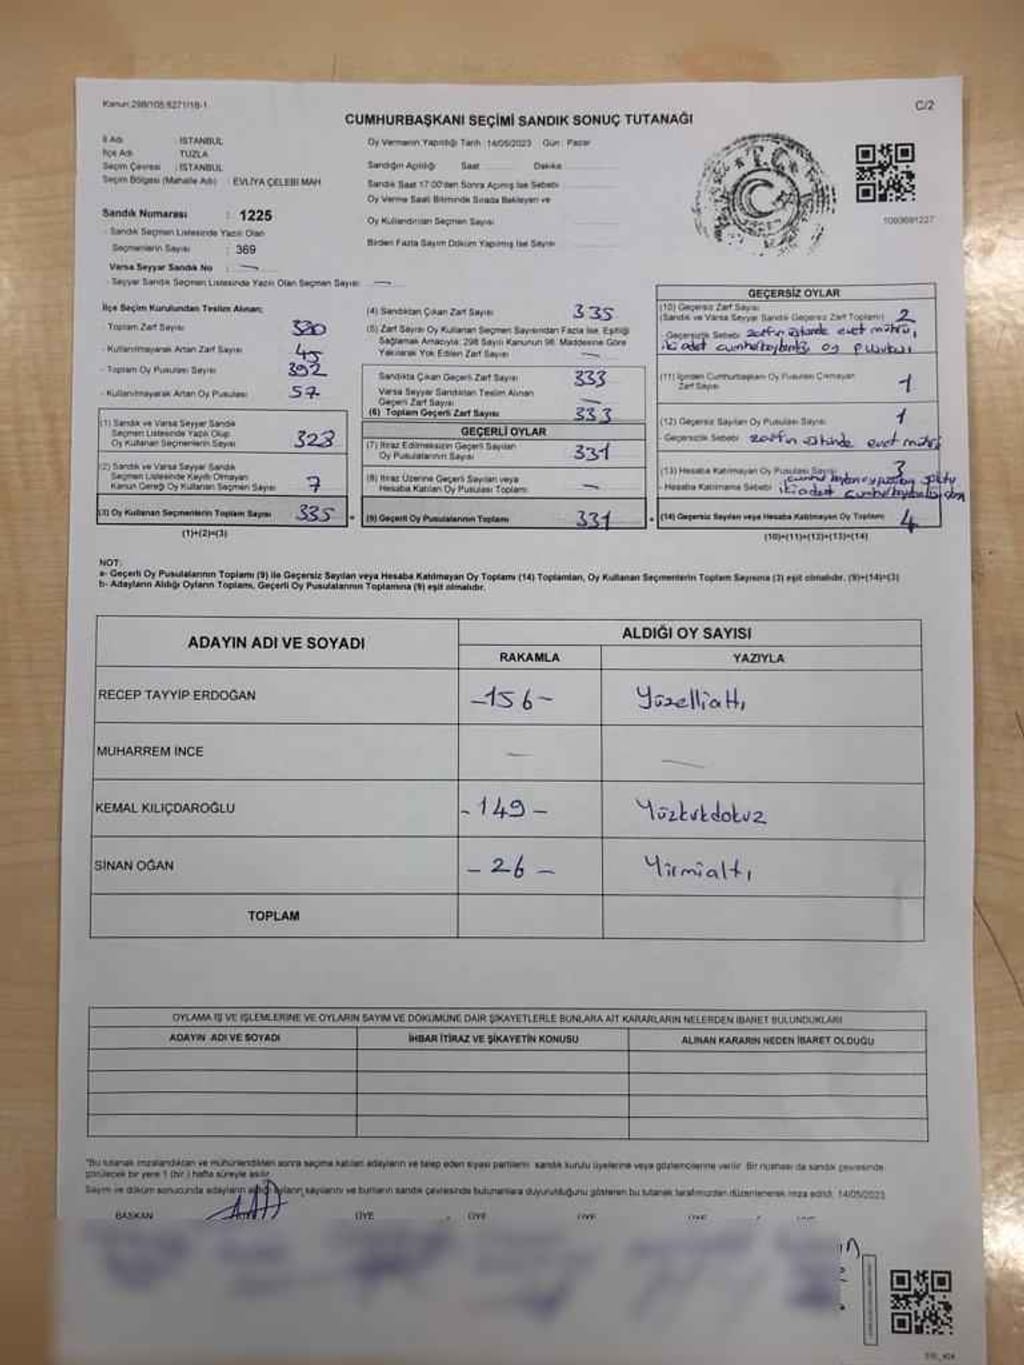 Kanun:298/105:6271/18-1
C/2
CUMHURBAŞKANI SEÇİMİ SANDIK SONUÇ TUTANAĞI
İl Adı : İSTANBUL
İlçe Adı : TUZLA
Seçim Çevresi : İSTANBUL
Seçim Bölgesi (Mahalle Adı) : EVLİYA ÇELEBİ MAH
Sandık Numarası : 1225
- Sandık Seçmen Listesinde Yazılı Olan
Seçmenlerin Sayısı : 369
Varsa Seyyar Sandık No : —
- Seyyar Sandık Seçmen Listesinde Yazılı Olan Seçmen Sayısı: —
Oy Vermenin Yapıldığı Tarih :14/05/2023 Gün : Pazar
Sandığın Açıldığı Saat Dakika
Sandık Saat 17:00'den Sonra Açılmış İse Sebebi
Oy Verme Saati Bitiminde Sırada Bekleyen ve
Oy Kullandırılan Seçmen Sayısı
Birden Fazla Sayım Döküm Yapılmış İse Sayısı
T.C.
1093691227
İlçe Seçim Kurulundan Teslim Alınan:
- Toplam Zarf Sayısı
- Kullanılmayarak Artan Zarf Sayısı 45
- Toplam Oy Pusulası Sayısı 392
- Kullanılmayarak Artan Oy Pusulası 57
(1) Sandık ve Varsa Seyyar Sandık
Seçmen Listesinde Yazılı Olup
Oy Kullanan Seçmenlerin Sayısı 323
(2) Sandık ve Varsa Seyyar Sandık
Seçmen Listesinde Kayıtlı Olmayan
Kanun Gereği Oy Kullanan Seçmen Sayısı 7
(3) Oy Kullanan Seçmenlerin Toplam Sayısı 335
(1)+(2)=(3)
(4) Sandıktan Çıkan Zarf Sayısı 335
(5) Zarf Sayısı Oy Kullanan Seçmen Sayısından Fazla İse, Eşitliği
Sağlamak Amacıyla; 298 Sayılı Kanunun 98. Maddesine Göre
Yakılarak Yok Edilen Zarf Sayısı —
Sandıkta Çıkan Geçerli Zarf Sayısı 333
Varsa Seyyar Sandıktan Teslim Alınan
Geçerli Zarf Sayısı —
(6) Toplam Geçerli Zarf Sayısı 333
GEÇERLİ OYLAR
(7) İtiraz Edilmeksizin Geçerli Sayılan
Oy Pusulalarının Sayısı 331
(8) İtiraz Üzerine Geçerli Sayılan veya
Hesaba Katılan Oy Pusulası Toplamı —
(9) Geçerli Oy Pusulalarının Toplamı 331
GEÇERSİZ OYLAR
(10) Geçersiz Zarf Sayısı
(Sandık ve Varsa Seyyar Sandık Geçersiz Zarf Toplamı) 2
- Geçersizlik Sebebi zarfın üstünde evet mührü,
iki adet cumhurbaşkanlığı oy pusulası
(11) İçinden Cumhurbaşkanı Oy Pusulası Çıkmayan
Zarf Sayısı 1
(12) Geçersiz Sayılan Oy Pusulası Sayısı 1
- Geçersizlik Sebebi zarfın üstünde evet mührü
(13) Hesaba Katılmayan Oy Pusulası Sayısı 3
- Hesaba Katılmama Sebebi iki adet
(14) Geçersiz Sayılan veya Hesaba Katılmayan Oy Toplamı 4
(10)+(11)+(12)+(13)=(14)
NOT:
a- Geçerli Oy Pusulalarının Toplamı (9) ile Geçersiz Sayılan veya Hesaba Katılmayan Oy Toplamı (14) Toplamları, Oy Kullanan Seçmenlerin Toplam Sayısına (3) eşit olmalıdır. (9)+(14)=(3)
b- Adayların Aldığı Oyların Toplamı, Geçerli Oy Pusulalarının Toplamına (9) eşit olmalıdır.
ADAYIN ADI VE SOYADI
ALDIĞI OY SAYISI
RAKAMLA YAZIYLA
RECEP TAYYİP ERDOĞAN -156- Yüzellialtı
MUHARREM İNCE — —
KEMAL KILIÇDAROĞLU -149- Yüzkırkdokuz
SİNAN OĞAN -26- Yirmialtı
TOPLAM
OYLAMA İŞ VE İŞLEMLERİNE VE OYLARIN SAYIM VE DÖKÜMÜNE DAİR ŞİKAYETLERLE BUNLARA AİT KARARLARIN NELERDEN İBARET BULUNDUKLARI
ADAYIN ADI VE SOYADI İHBAR İTİRAZ VE ŞİKAYETİN KONUSU ALINAN KARARIN NEDEN İBARET OLDUĞU
"Bu tutanak imzalandıktan ve mühürlendikten sonra seçime katılan adayların ve talep eden siyasi partilerin sandık kurulu üyelerine veya gözlemcilerine verilir. Bir nüshası da sandık çevresinde
görülecek bir yere 1 (bir ) hafta süreyle asılır.
Sayım ve döküm sonucunda adayların aldığı oyların sayılarını ve bunların sandık çevresinde bulunanlara duyurulduğunu gösteren bu tutanak tarafımızdan düzenlenerek imza edildi. 14/05/2023
BAŞKAN ÜYE ÜYE ÜYE ÜYE ÜYE